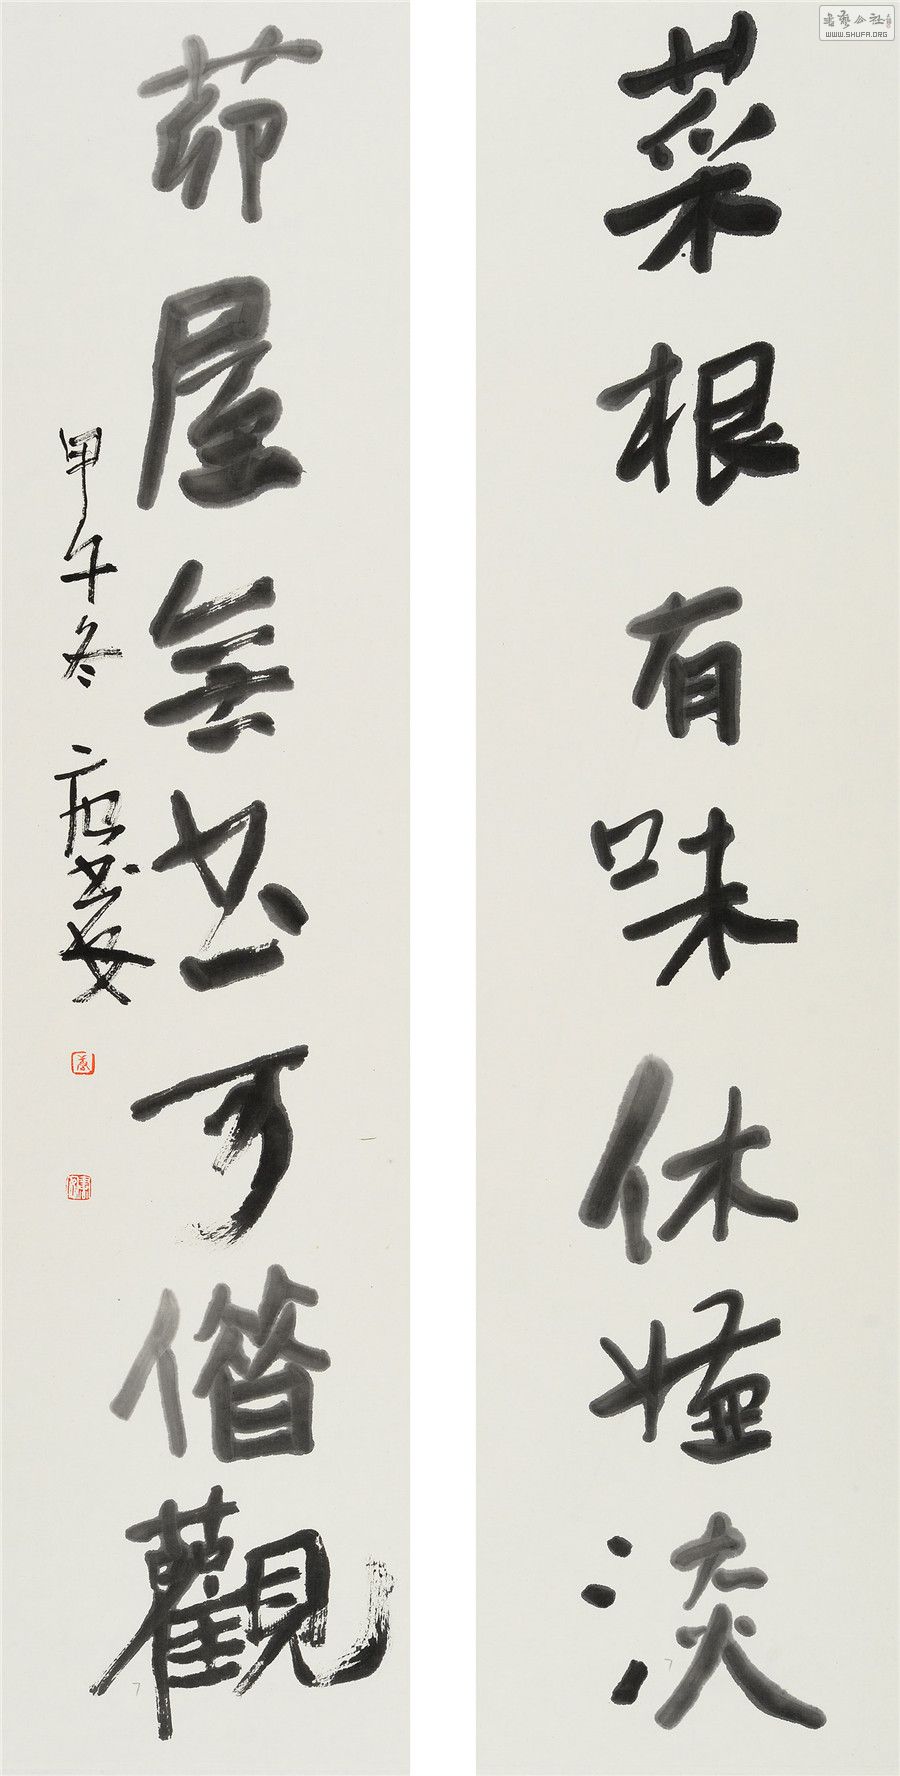 菜根有味休嫌淡
茆屋無書可借觀
甲午冬
書藝公社
WWW.SHUFA.ORG